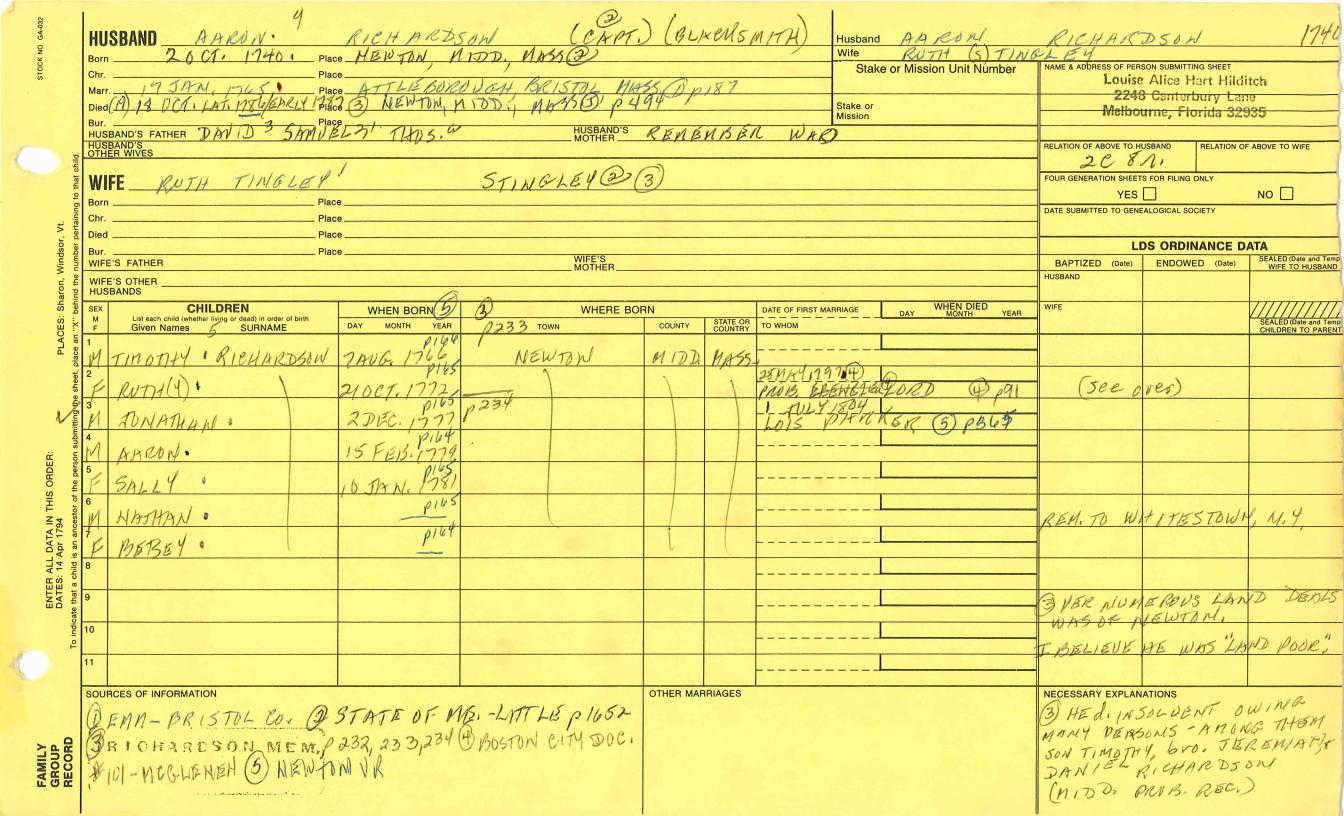 STOCK NO. GA-032
HUSBAND AARON 4 RICHARDSON (CAPT.) ② (BLACKSMITH)
Born 20 OCT. 1740. Place NEWTON, MIDD, MASS ②
Chr. Place
Marr. 17 JAN. 1765. Place ATTLEBOROUGH, BRISTOL MASS ① p187
Died (A) 18 OCT. LAT. 1786/EARLY 1787 Place ③ NEWTON, MIDD, MASS ③ p494
Bur. Place
HUSBAND'S FATHER DAVID 3 SAMUEL 2 THOS. HUSBAND'S MOTHER REMEMBER WARD
HUSBAND'S OTHER WIVES
Husband AARON RICHARDSON 1740
Wife RUTH (S)TINGLEY
Stake or Mission Unit Number
Stake or Mission
NAME & ADDRESS OF PERSON SUBMITTING SHEET
Louise Alice Hart Hilditch
2248 Canterbury Lane
Melbourne, Florida 32935
RELATION OF ABOVE TO HUSBAND RELATION OF ABOVE TO WIFE
2C 8r.
FOUR GENERATION SHEETS FOR FILING ONLY
YES NO
DATE SUBMITTED TO GENEALOGICAL SOCIETY
WIFE RUTH TINGLEY 1 STINGLEY ② ③
Born Place
Chr. Place
Died Place
Bur. Place
WIFE'S FATHER WIFE'S MOTHER
WIFE'S OTHER HUSBANDS
LDS ORDINANCE DATA
BAPTIZED (Date) ENDOWED (Date) SEALED (Date and Temp
WIFE TO HUSBAND
HUSBAND
WIFE
SEALED (Date and Temp
CHILDREN TO PARENT
SEX M F CHILDREN WHEN BORN ⑤ WHERE BORN DATE OF FIRST MARRIAGE WHEN DIED
List each child (whether living or dead) in order of birth
Given Names 5 SURNAME DAY MONTH YEAR p233 TOWN COUNTY STATE OR COUNTRY TO WHOM DAY MONTH YEAR
1 M TIMOTHY RICHARDSON 7 AUG. 1766 p164 NEWTON MIDD. MASS.
2 F RUTH (4) 21 OCT. 1772 p165 PROB. LORD ④ p91 (see over)
3 M JONATHAN 2 DEC. 1777 p165 p234 1 JULY 1804 LOIS PARKER ⑤ p365
4 M AARON 15 FEB. 1779 p164
5 F SALLY 10 JAN. 1781 p165
6 M NATHAN p165 REM. TO WHITESTOWN, N.Y.
7 F BETSEY p164
8
9
10
11
③ VER NUMEROUS LAND DEALS
WAS OF NEWTON.
I BELIEVE HE WAS "LAND POOR".
SOURCES OF INFORMATION
① EMM-BRISTOL Co. ② STATE OF MS.-LITTLE p1652
③ RICHARDSON MEM. p232, 233, 234 ④ BOSTON CITY DOC.
#101-MCGLENEN ⑤ NEWTON VR
OTHER MARRIAGES
NECESSARY EXPLANATIONS
③ HE d. INSOLVENT OWING
MANY PERSONS - AMONG THEM
SON TIMOTHY, bro. JEREMIAH &
DANIEL RICHARDSON
(MIDD. PROB. REC.)
PLACES: Sharon, Windsor, Vt.
ENTER ALL DATA IN THIS ORDER:
DATES: 14 Apr 1794
To indicate that a child is an ancestor of the person submitting the sheet, place an "X" behind the number pertaining to that child.
FAMILY GROUP RECORD